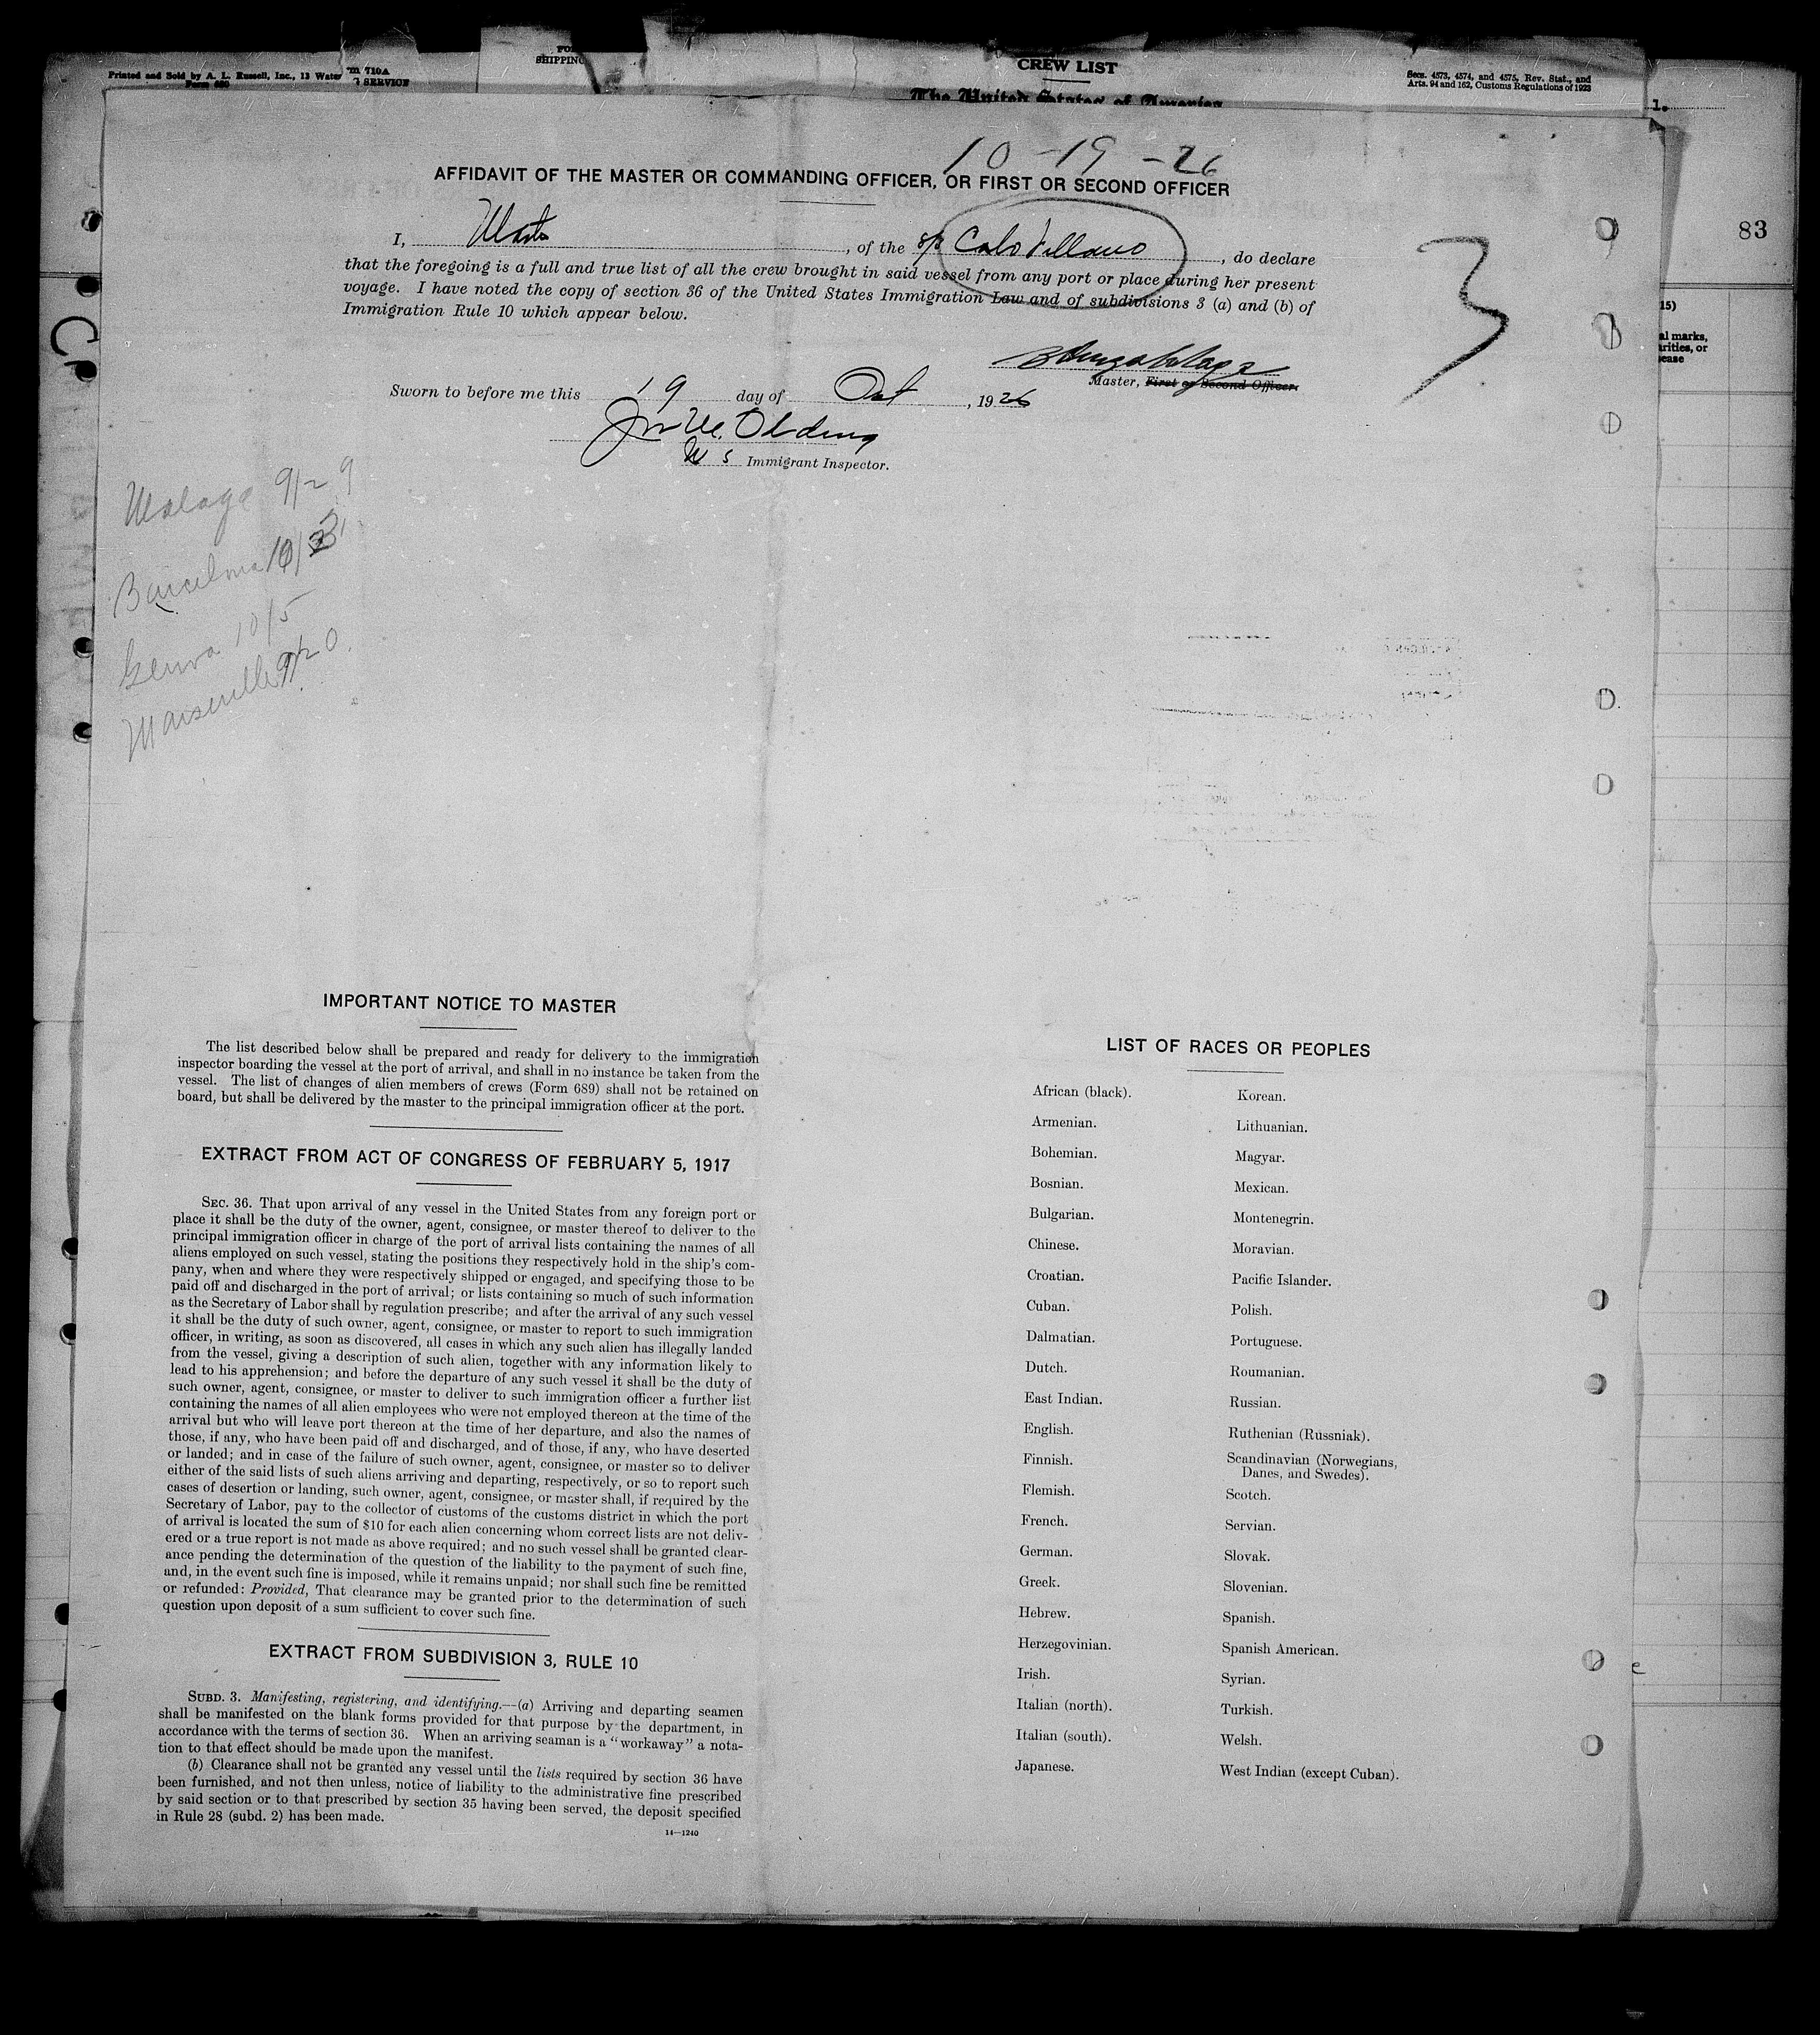 Printed and Sold by A. L. Russell, Inc., 13 Water
Form 689
710A
SERVICE
SHIPPING
CREW LIST
The United States of America
Secs. 4573, 4574, and 4575, Rev. Stat., and
Arts. 94 and 162, Customs Regulations of 1923
1.
83
15)
al marks,
arities, or
sease
10-19-26
AFFIDAVIT OF THE MASTER OR COMMANDING OFFICER, OR FIRST OR SECOND OFFICER
I, Master, of the S/S Cabo Villano, do declare
that the foregoing is a full and true list of all the crew brought in said vessel from any port or place during her present
voyage. I have noted the copy of section 36 of the United States Immigration Law and of subdivisions 3 (a) and (b) of
Immigration Rule 10 which appear below.
3
Master, First or Second Officer.
Sworn to before me this 19 day of Oct, 1926
Immigrant Inspector.
Malaga 9/29
Barcelona 10/3
Genoa 10/5
Marseille 9/20.
IMPORTANT NOTICE TO MASTER
The list described below shall be prepared and ready for delivery to the immigration
inspector boarding the vessel at the port of arrival, and shall in no instance be taken from the
vessel. The list of changes of alien members of crews (Form 689) shall not be retained on
board, but shall be delivered by the master to the principal immigration officer at the port.
EXTRACT FROM ACT OF CONGRESS OF FEBRUARY 5, 1917
SEC. 36. That upon arrival of any vessel in the United States from any foreign port or
place it shall be the duty of the owner, agent, consignee, or master thereof to deliver to the
principal immigration officer in charge of the port of arrival lists containing the names of all
aliens employed on such vessel, stating the positions they respectively hold in the ship's com-
pany, when and where they were respectively shipped or engaged, and specifying those to be
paid off and discharged in the port of arrival; or lists containing so much of such information
as the Secretary of Labor shall by regulation prescribe; and after the arrival of any such vessel
it shall be the duty of such owner, agent, consignee, or master to report to such immigration
officer, in writing, as soon as discovered, all cases in which any such alien has illegally landed
from the vessel, giving a description of such alien, together with any information likely to
lead to his apprehension; and before the departure of any such vessel it shall be the duty of
such owner, agent, consignee, or master to deliver to such immigration officer a further list
containing the names of all alien employees who were not employed thereon at the time of the
arrival but who will leave port thereon at the time of her departure, and also the names of
those, if any, who have been paid off and discharged, and of those, if any, who have deserted
or landed; and in case of the failure of such owner, agent, consignee, or master so to deliver
either of the said lists of such aliens arriving and departing, respectively, or so to report such
cases of desertion or landing, such owner, agent, consignee, or master shall, if required by the
Secretary of Labor, pay to the collector of customs of the customs district in which the port
of arrival is located the sum of $10 for each alien concerning whom correct lists are not deliv-
ered or a true report is not made as above required; and no such vessel shall be granted clear-
ance pending the determination of the question of the liability to the payment of such fine,
and, in the event such fine is imposed, while it remains unpaid; nor shall such fine be remitted
or refunded: Provided, That clearance may be granted prior to the determination of such
question upon deposit of a sum sufficient to cover such fine.
EXTRACT FROM SUBDIVISION 3, RULE 10
SUBD. 3. Manifesting, registering, and identifying.—(a) Arriving and departing seamen
shall be manifested on the blank forms provided for that purpose by the department, in
accordance with the terms of section 36. When an arriving seaman is a "workaway" a nota-
tion to that effect should be made upon the manifest.
(b) Clearance shall not be granted any vessel until the lists required by section 36 have
been furnished, and not then unless, notice of liability to the administrative fine prescribed
by said section or to that prescribed by section 35 having been served, the deposit specified
in Rule 28 (subd. 2) has been made.
14—1240
LIST OF RACES OR PEOPLES
African (black).
Armenian.
Bohemian.
Bosnian.
Bulgarian.
Chinese.
Croatian.
Cuban.
Dalmatian.
Dutch.
East Indian.
English.
Finnish.
Flemish.
French.
German.
Greek.
Hebrew.
Herzegovinian.
Irish.
Italian (north).
Italian (south).
Japanese.
Korean.
Lithuanian.
Magyar.
Mexican.
Montenegrin.
Moravian.
Pacific Islander.
Polish.
Portuguese.
Roumanian.
Russian.
Ruthenian (Russniak).
Scandinavian (Norwegians,
Danes, and Swedes).
Scotch.
Servian.
Slovak.
Slovenian.
Spanish.
Spanish American.
Syrian.
Turkish.
Welsh.
West Indian (except Cuban).